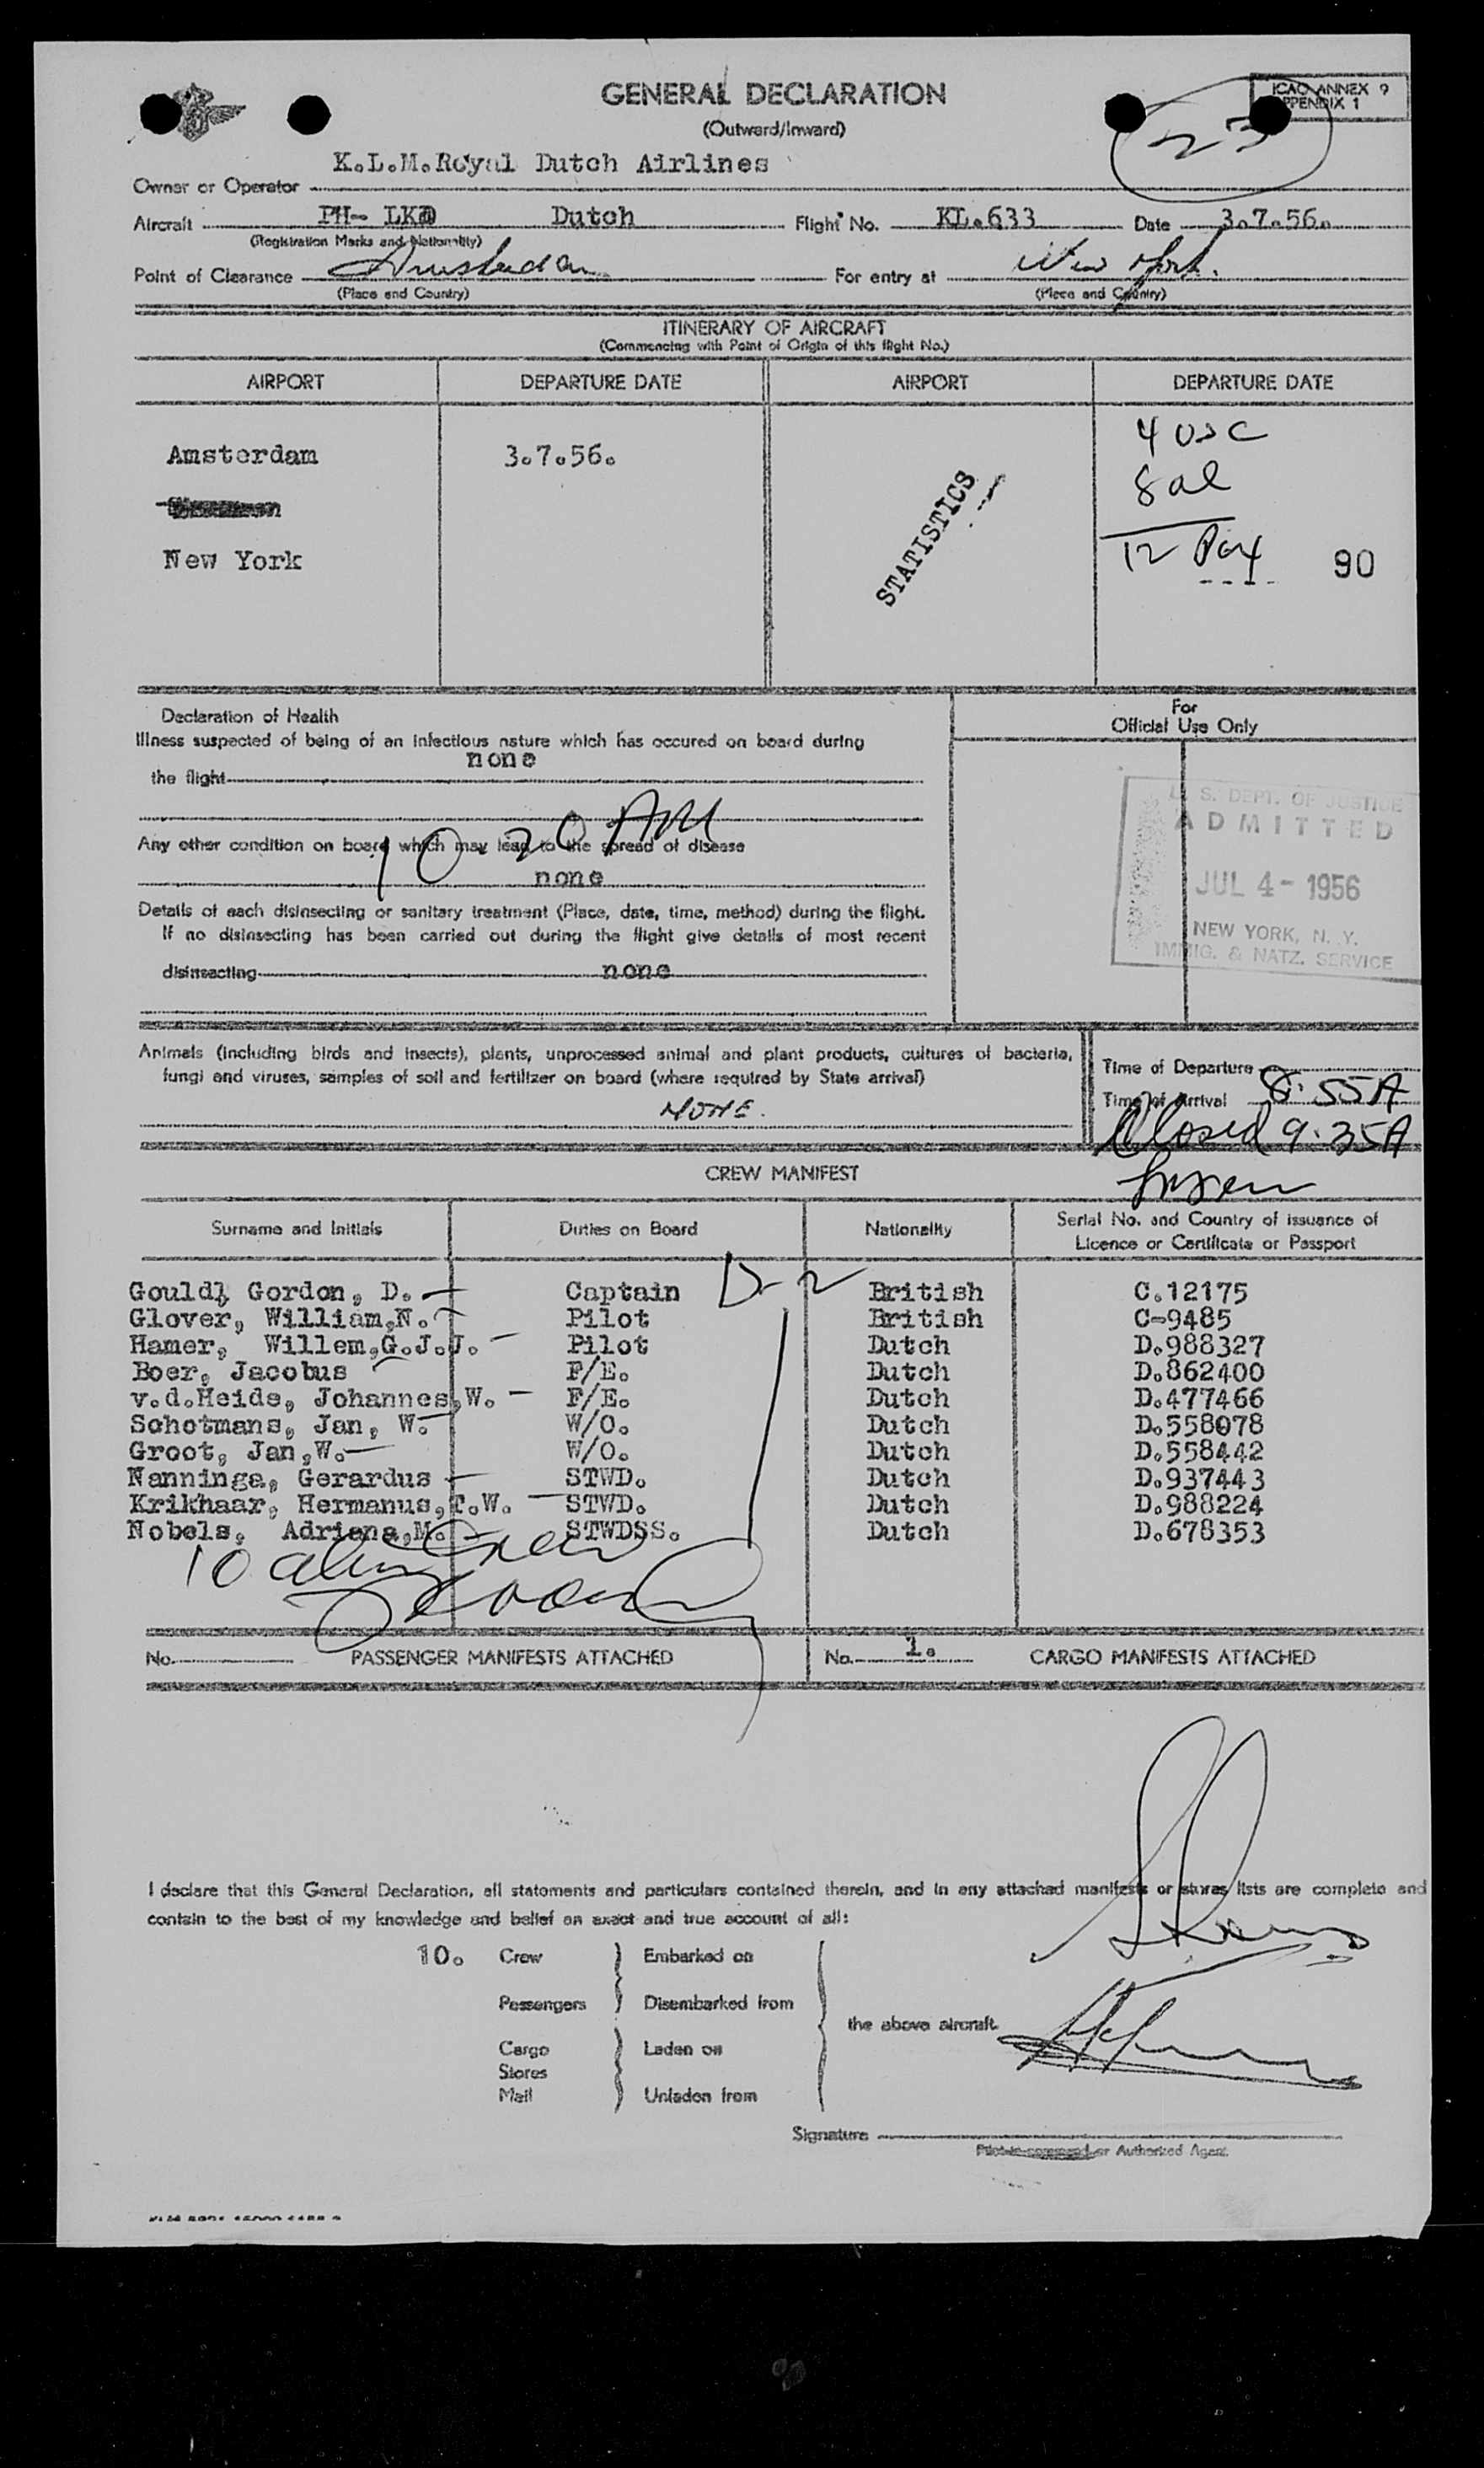 GENERAL DECLARATION
(Outward/Inward)
ICAO ANNEX 9
APPENDIX 1
23
K.L.M.Royal Dutch Airlines
Owner or Operator
Aircraft PH- LK Dutch Flight No. KL.633 Date 3.7.56.
(Registration Marks and Nationality)
Point of Clearance Amsterdam For entry at New York.
(Place and Country) (Place and Country)
ITINERARY OF AIRCRAFT
(Commencing with Point of Origin of this flight No.)
AIRPORT DEPARTURE DATE AIRPORT DEPARTURE DATE
4 USC
Amsterdam 3.7.56.
8 al
STATISTICS
New York
12 Pax 90
Declaration of Health
Illness suspected of being of an infectious nature which has occured on board during
none
the flight
For
Official Use Only
10 20 AM
Any other condition on board which may lead to the spread of disease
none
Details of each disinsecting or sanitary treatment (Place, date, time, method) during the flight.
If no disinsecting has been carried out during the flight give details of most recent
disinsecting none
U. S. DEPT. OF JUSTICE
ADMITTED
JUL 4- 1956
NEW YORK, N. Y.
IMMIG. & NATZ. SERVICE
Animals (including birds and insects), plants, unprocessed animal and plant products, cultures of bacteria,
fungi and viruses, samples of soil and fertilizer on board (where required by State arrival)
NONE.
Time of Departure
Time of Arrival 8:55A
Closed 9:35A
CREW MANIFEST
Surname and Initials Duties on Board Nationality Serial No. and Country of issuance of
Licence or Certificate or Passport
D-2
Gould, Gordon, D. Captain British C.12175
Glover, William,N. Pilot British C-9485
Hamer, Willem,G.J.J. Pilot Dutch D.988327
Boer, Jacobus F/E. Dutch D.862400
v.d.Heide, Johannes,W. F/E. Dutch D.477466
Schotmans, Jan, W. W/O. Dutch D.558078
Groot, Jan,W. W/O. Dutch D.558442
Nanninga, Gerardus STWD. Dutch D.937443
Krikhaar, Hermanus,T.W. STWD. Dutch D.988224
Nobels, Adriana,M. STWDSS. Dutch D.678353
10 alien crew
No. PASSENGER MANIFESTS ATTACHED No. 1. CARGO MANIFESTS ATTACHED
I declare that this General Declaration, all statements and particulars contained therein, and in any attached manifests or stores lists are complete and
contain to the best of my knowledge and belief an exact and true account of all:
10. Crew Embarked on
Passengers Disembarked from
the above aircraft.
Cargo Laden on
Stores
Mail Unladen from
Signature
Pilot-in-command or Authorized Agent.